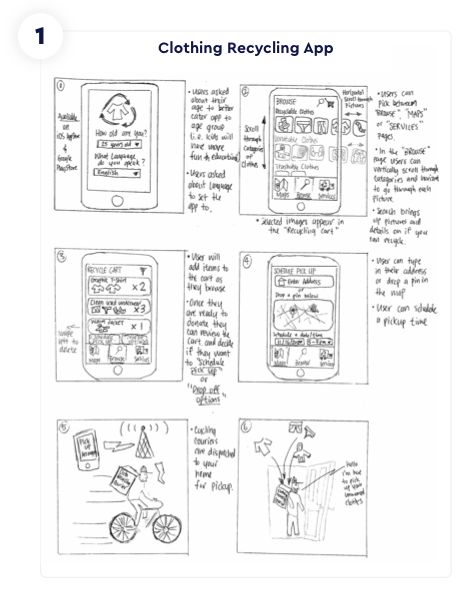 1
Clothing Recycling App
1
Available
on
iOS App Store
&
Google
Playstore
How old are you?
25 years old
What Language
do you speak?
English
• Users asked
about their
age to better
cater app to
age group
i.e. kids will
have more
fun & educational
• Users asked
about Language
to set the
app to.
2
Scroll
through
Categories
of
Clothes
BROWSE
Recyclable Clothes
Clothes
Clothes
Maps
Browse
Services
Horizontal
Scroll through
Pictures
• Selected images appear in
the "Recycling cart"
• Users can
pick between
"BROWSE", "MAPS"
or "SERVICES"
Pages.
• In the "BROWSE"
page users can
vertically scroll through
categories and
to go through each
picture.
• Search brings
up pictures and
details on if you
can recycle.
3
left to
delete
RECYCLE CART
T-shirt
x 2
underwear
x 3
Jacket
x 1
Maps
Browse
Services
• User will
add items to
the cart as
they browse
• Once they
are ready to
donate they
can review the
cart and decide
if they want
to "Schedule
PICK UP"
or
"Drop off
options"
4
SCHEDULE PICK UP
Enter Address
or
Drop a pin below
Schedule a date/time
Maps
Browse
Services
• User can type
in their address
or drop a pin in
the map
• User can schedule
a pickup time
5
Pick
up
• Cycling
couriers
are dispatched
to your
home
for pickup.
6
hello
i'm here
to pick
up your
unwanted
clothes